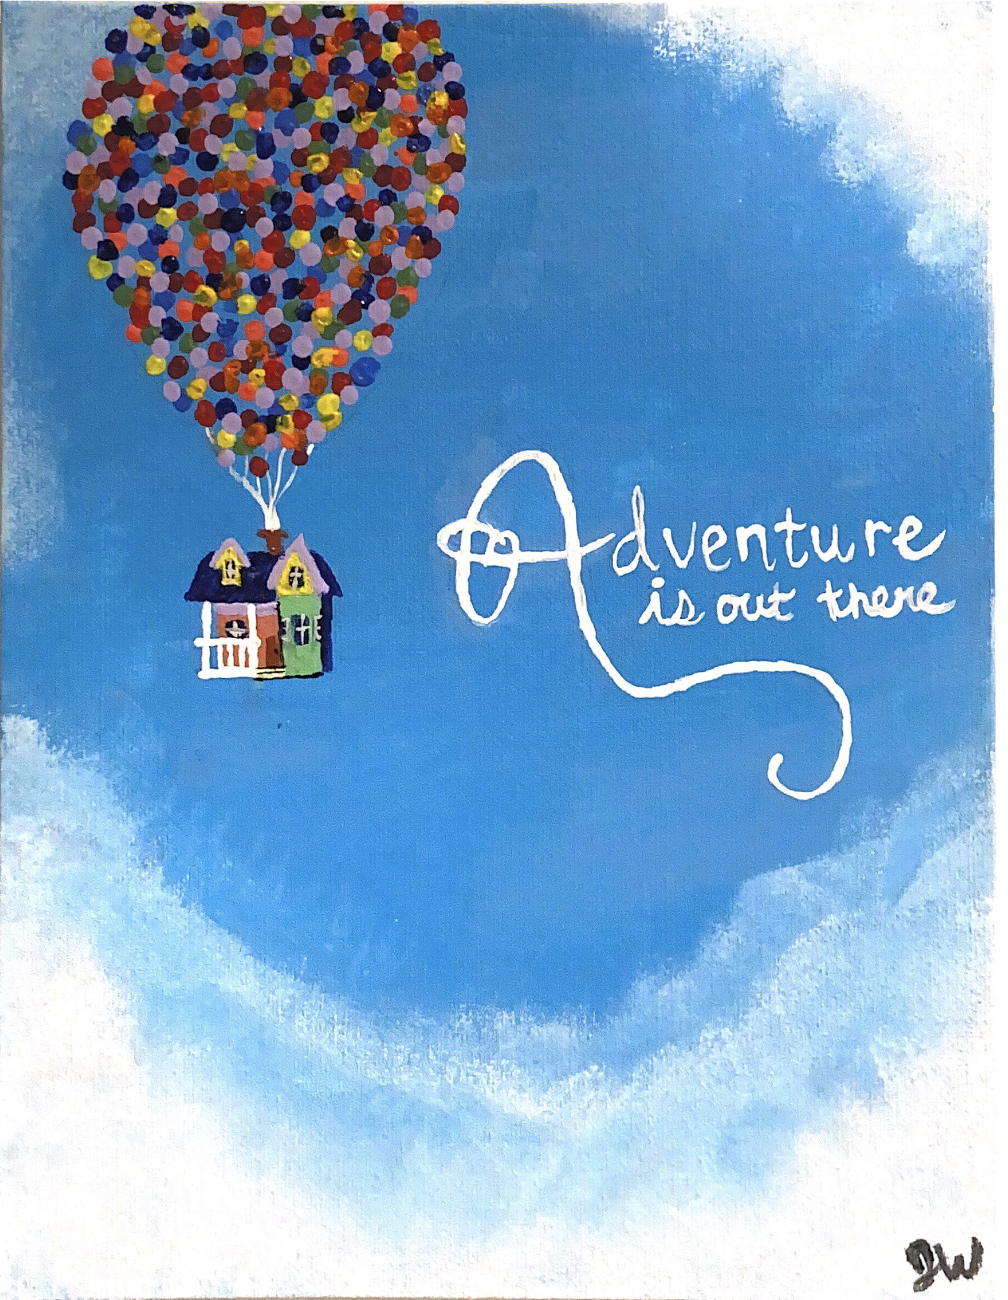 Adventure
is out there
JW